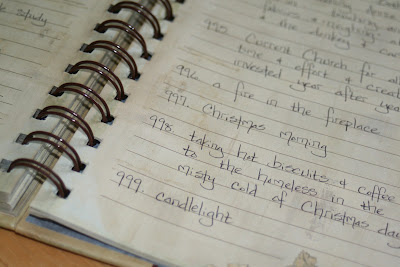 Study
& the turkey & ca
995. Current Church for all
time & effort & creat
invested year after year
996. a fire in the fireplace
997. Christmas morning
998. taking hot biscuits & coffee
to the homeless in the
misty cold of Christmas day
999. candlelight